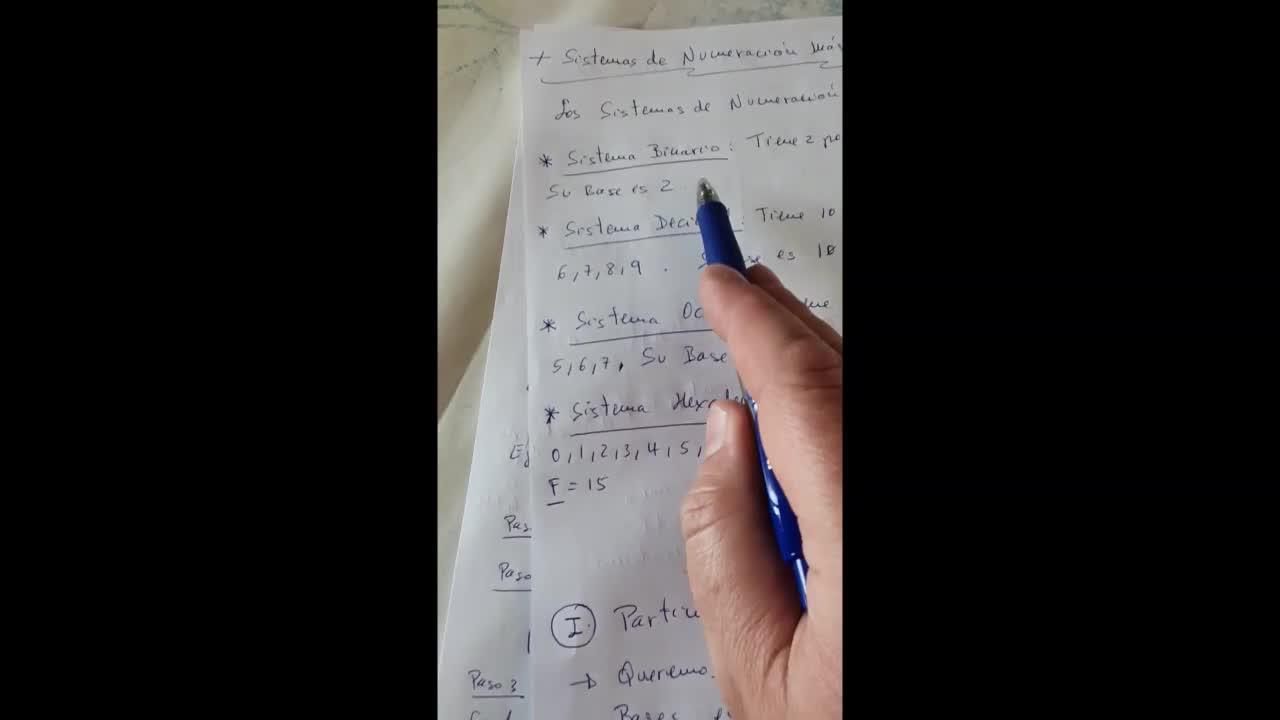 + Sistemas de Numeración Más
Los Sistemas de Numeración
* Sistema Binario: Tiene 2 po
Su Base es 2
* Sistema Deci : Tiene 10
6,7,8,9. es 10
* Sistema Oc
5,6,7, Su Base
* Sistema Hexade
0,1,2,3,4,5,
F = 15
Ej
Pas
Paso
I. Partie
→ Queremo
Paso 3
Bases